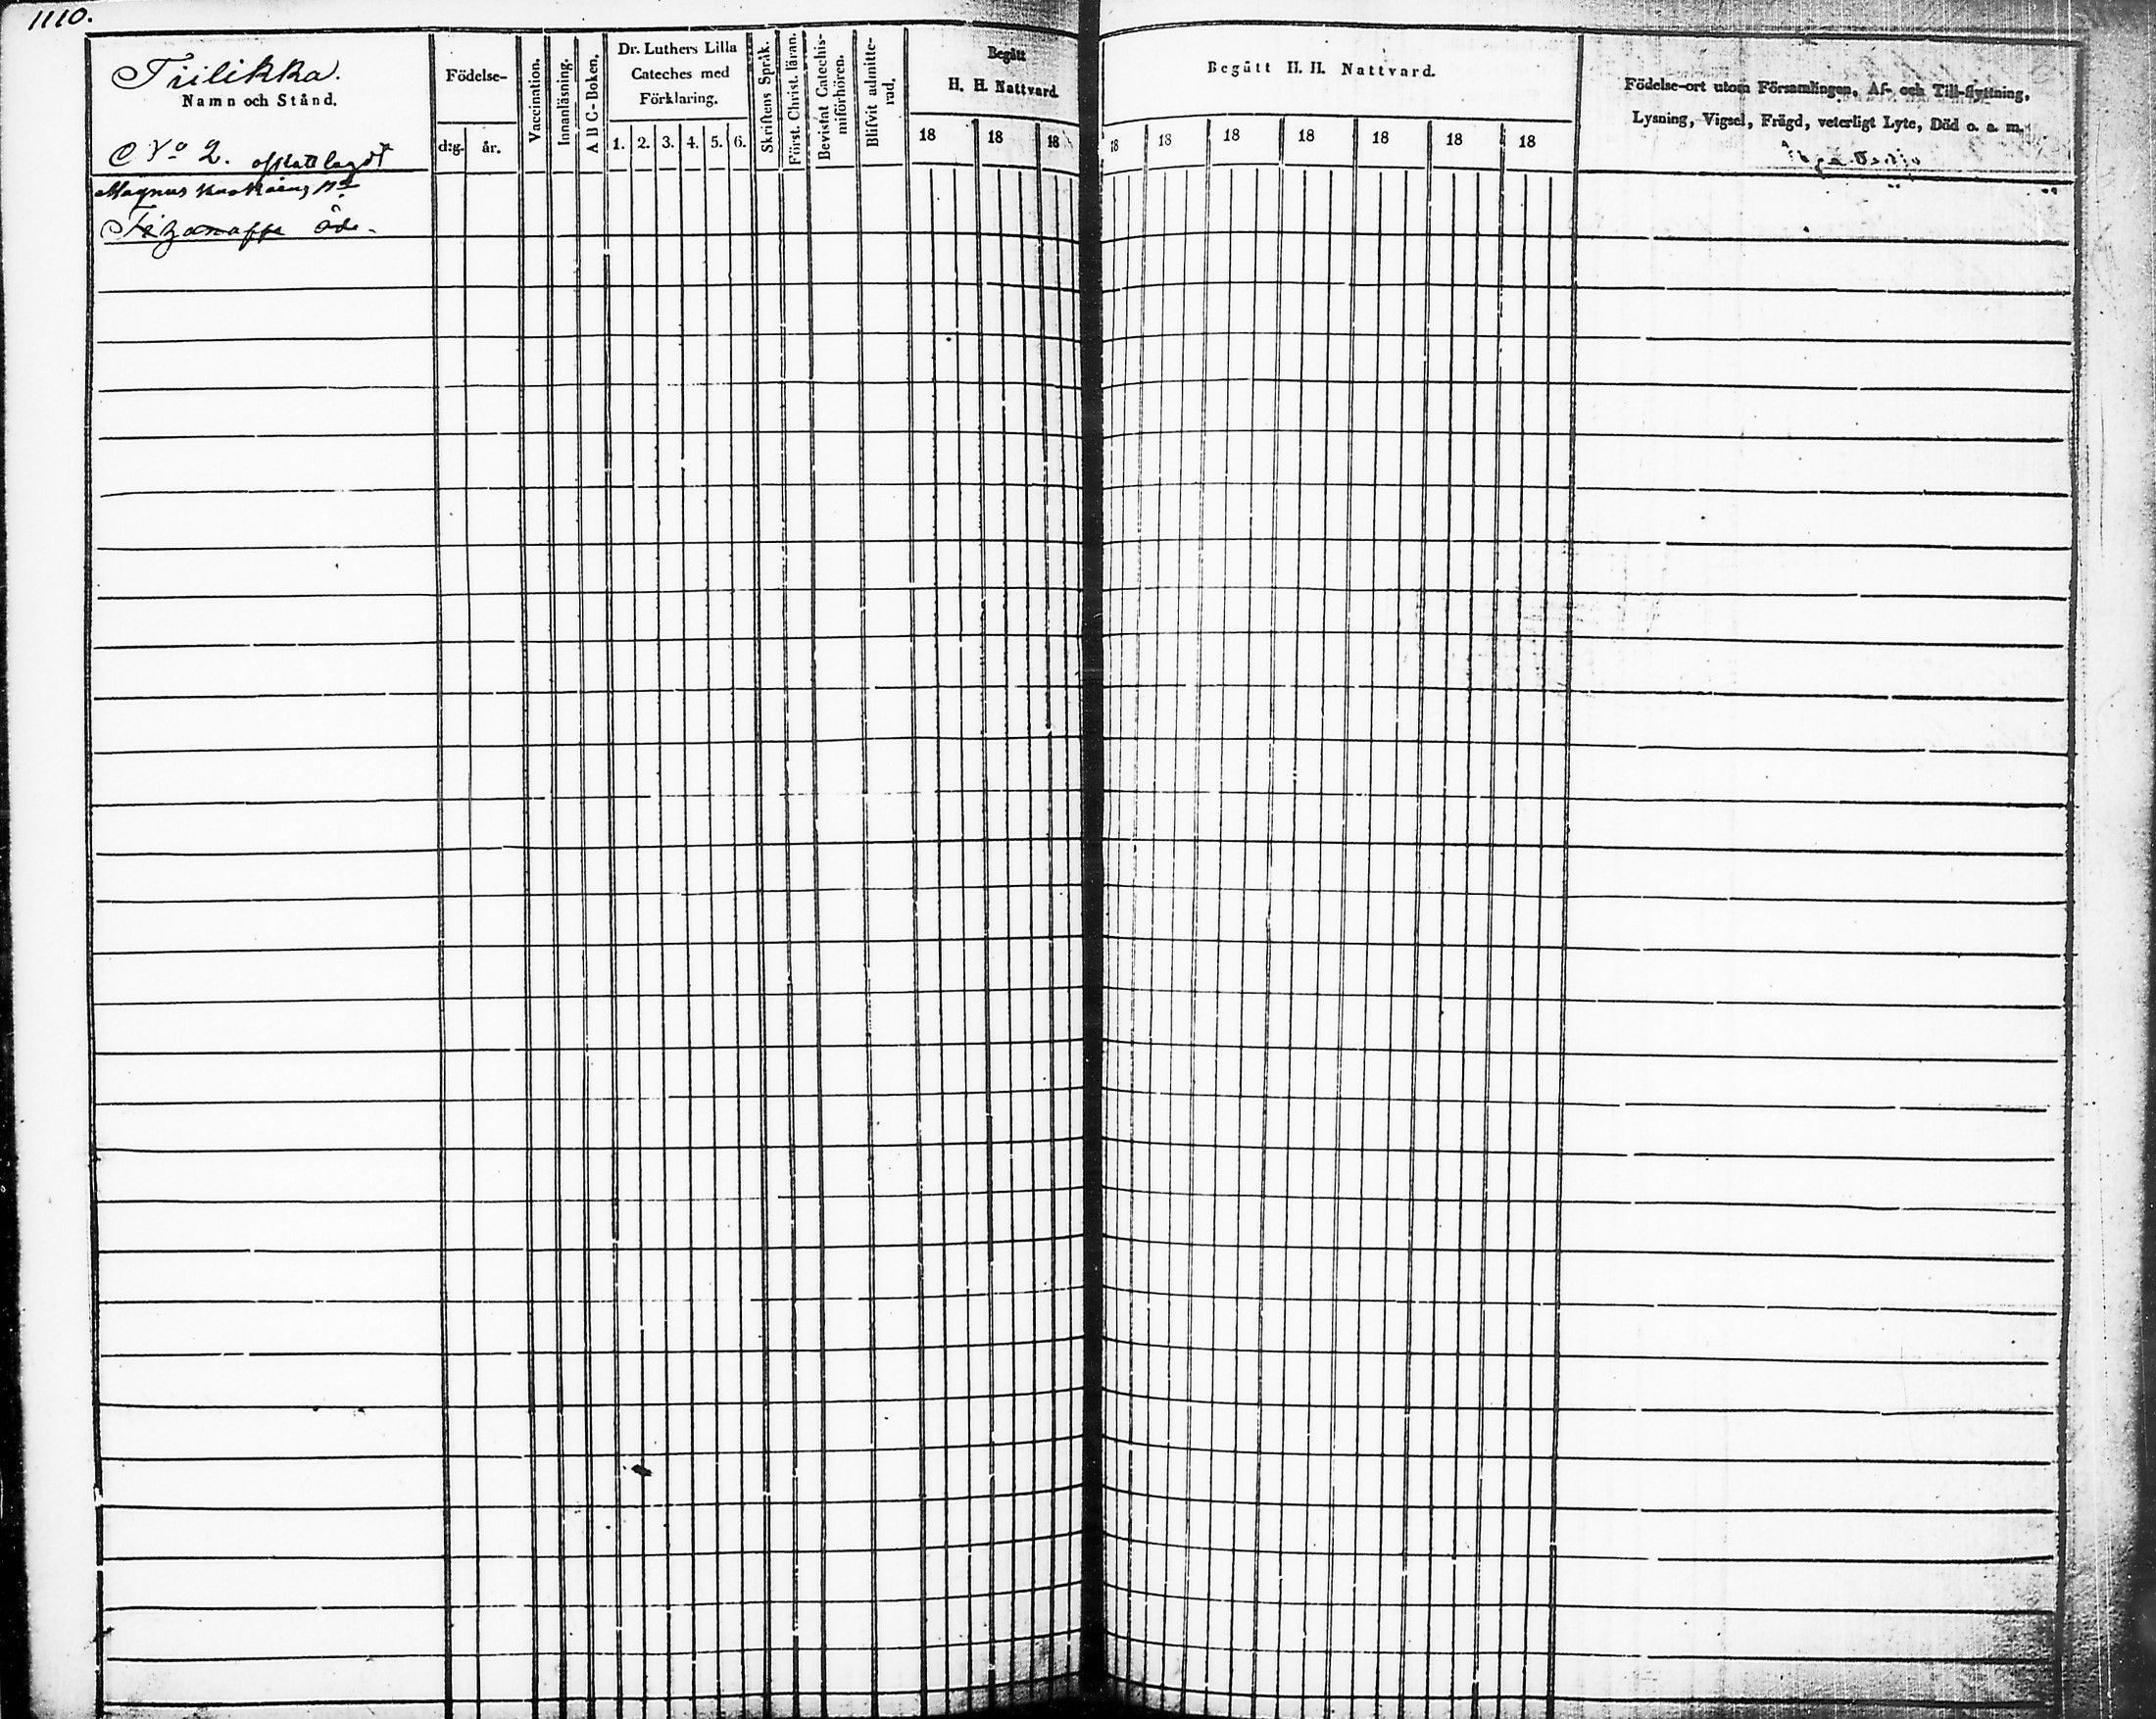 1110.
Tiilikka.
Namn och Stånd.
No 2. afstatt lagdt
Magnus
öde.
Födelse-
d:g. år.
Vaccination.
Innanläsning.
A B C-Boken.
Dr. Luthers Lilla
Cateches med
Förklaring.
1. 2. 3. 4. 5. 6.
Skriftens Språk.
Först. Christ. läran.
Bevistat Catechis-
misförhören.
Blifvit admitte-
rad.
Begått
H. H. Nattvard
18 18 18
Begått H. H. Nattvard.
18 18 18 18 18 18 18
Födelse-ort utom Församlingen, Af- och Till-flyttning,
Lysning, Vigsel, Frägd, veterligt Lyte, Död o. a. m.